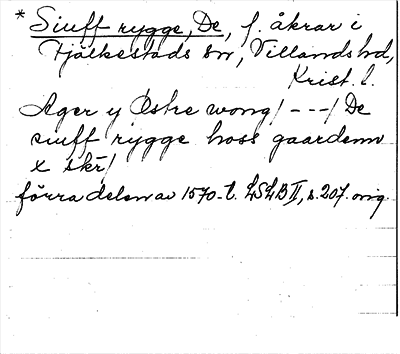 * Siuff rygge, De, f. åkrar i
Fjälkestads sn, Villands hd,
Krist. l.
Ager y Østre wong / - - - / De
siuff rygge hoss gaardenn
x skr /
förra delen av 1570-t. LSLB II, s. 207. orig.